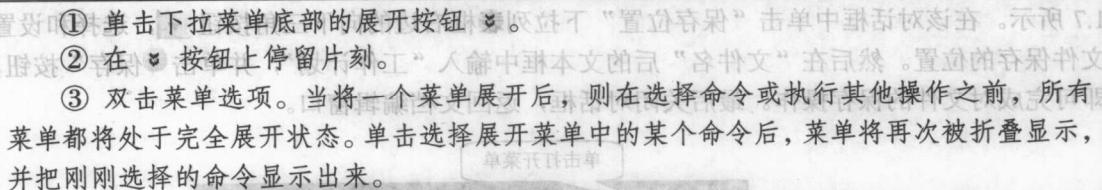 ① 单击下拉菜单底部的展开按钮 ⌄。
② 在 ⌄ 按钮上停留片刻。
③ 双击菜单选项。当将一个菜单展开后，则在选择命令或执行其他操作之前，所有
菜单都将处于完全展开状态。单击选择展开菜单中的某个命令后，菜单将再次被折叠显示，
并把刚刚选择的命令显示出来。